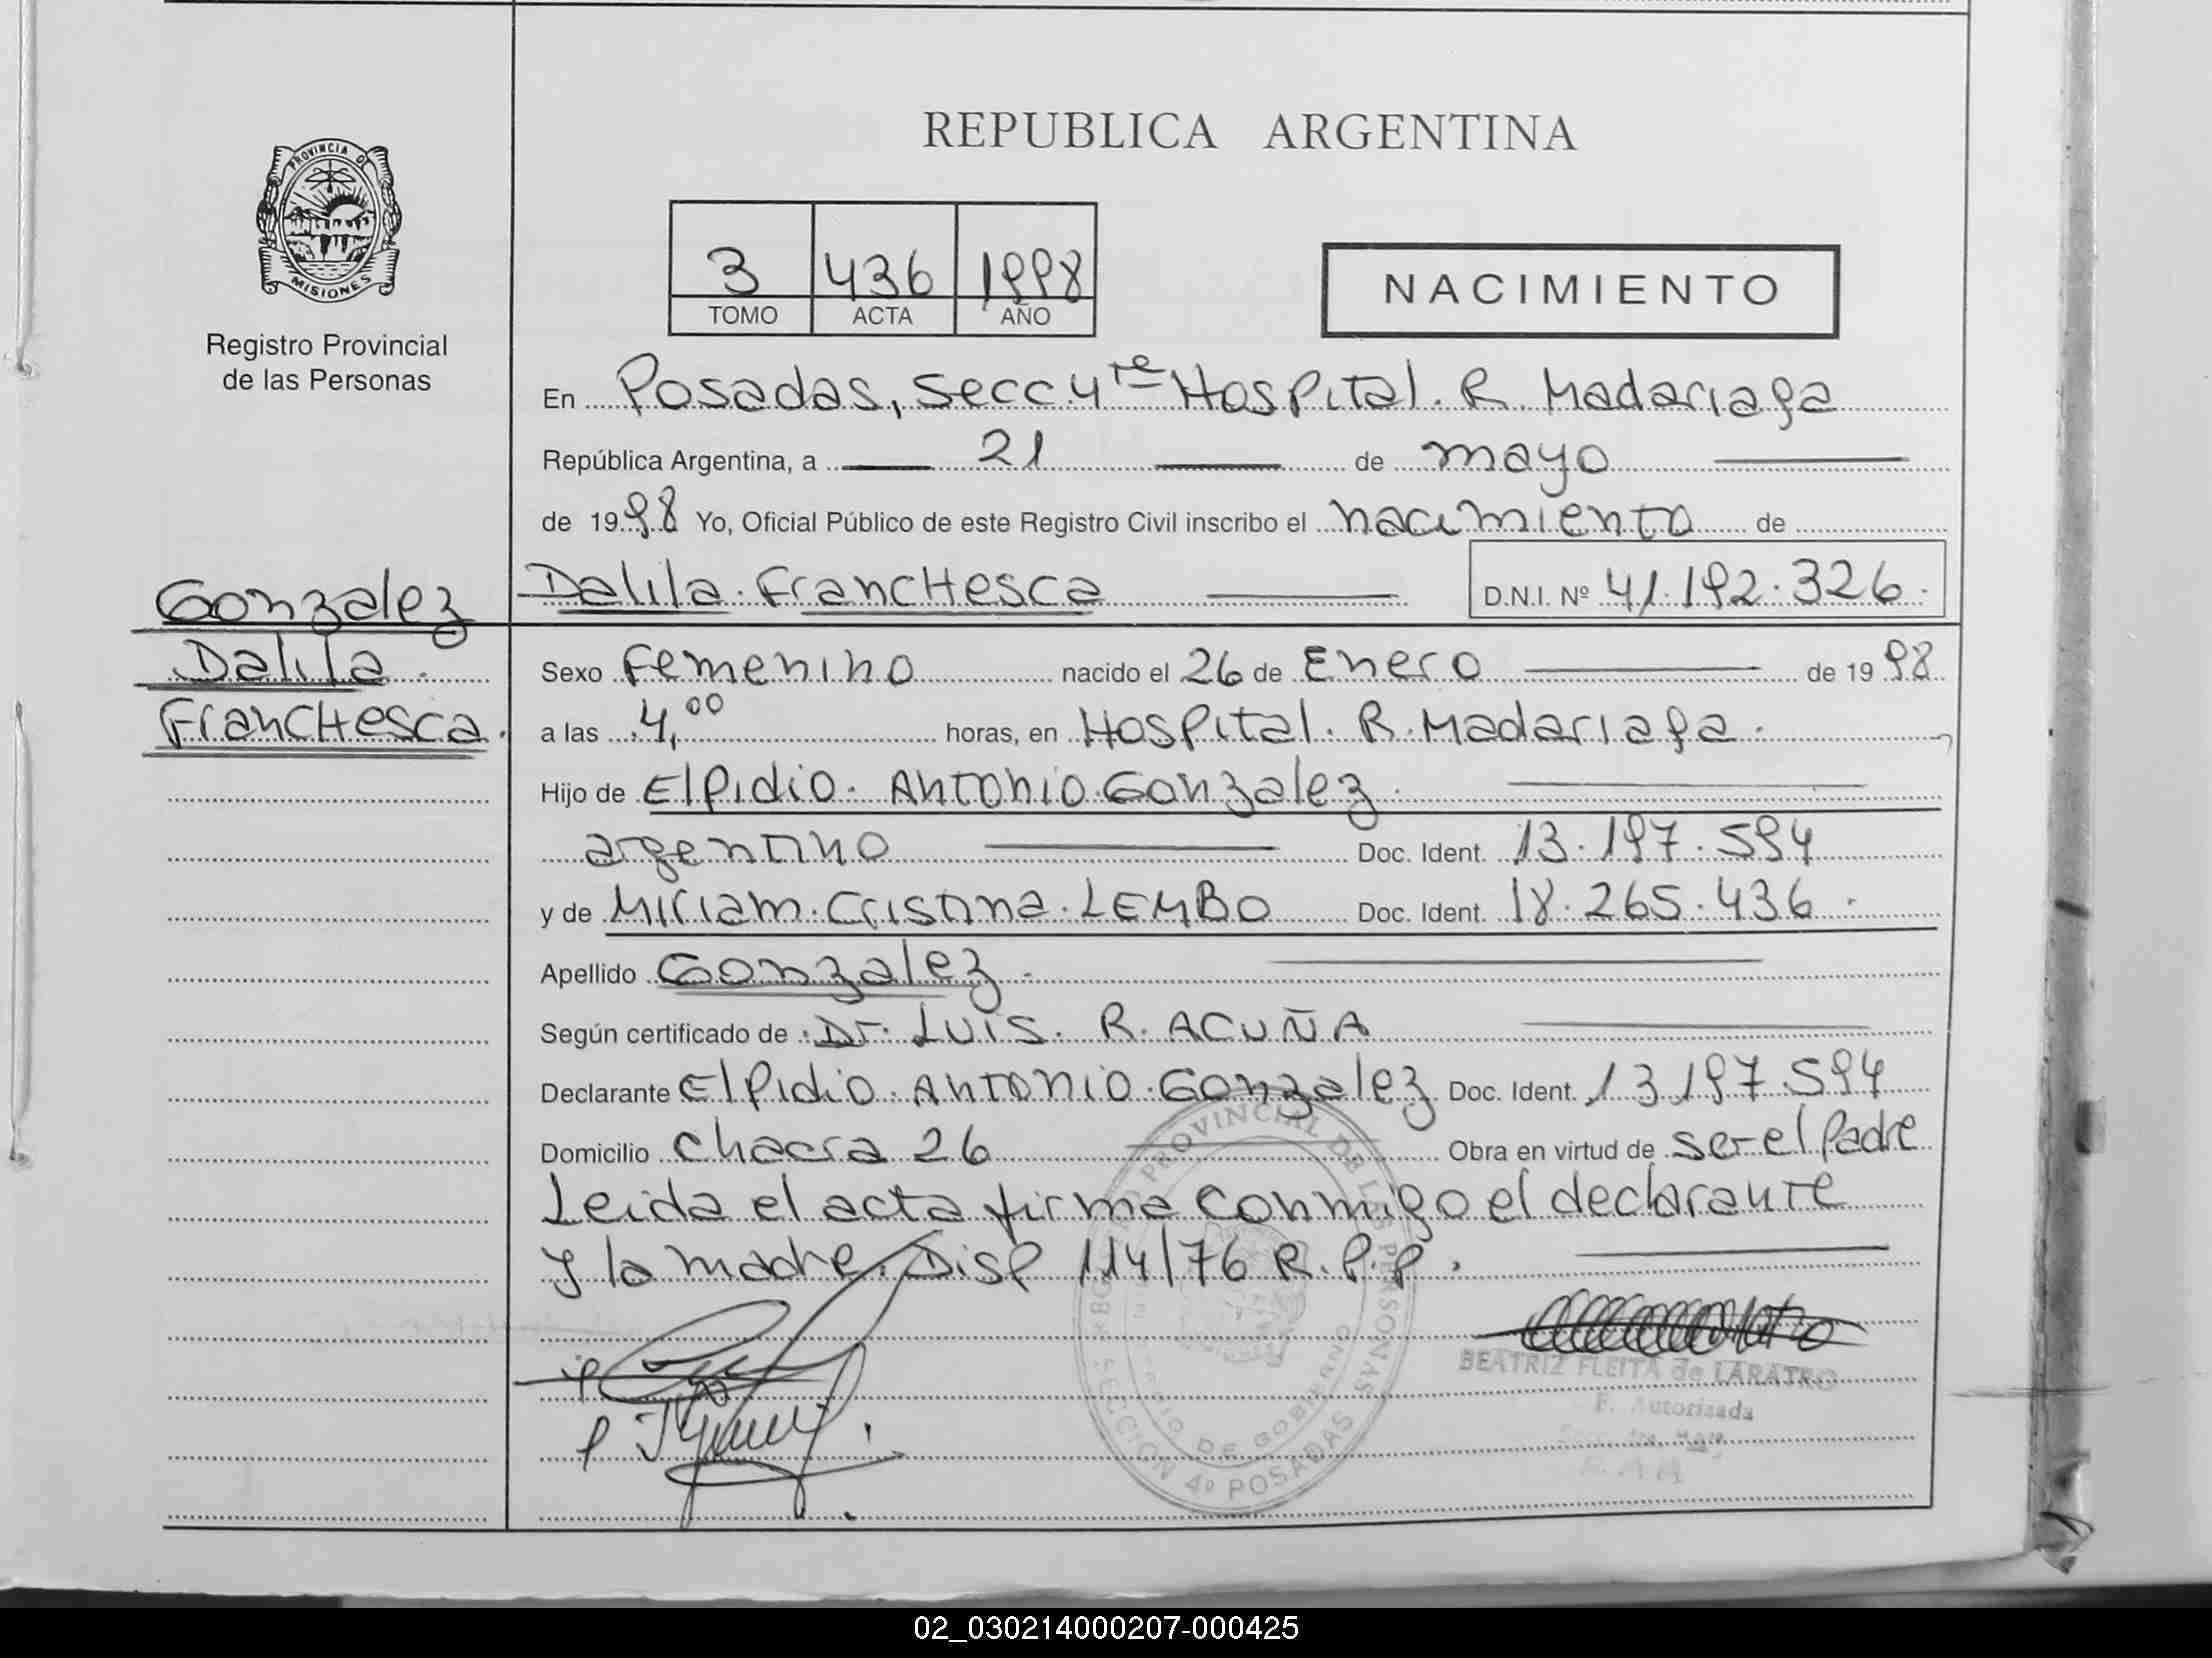 REPUBLICA ARGENTINA
PROVINCIA DE
MISIONES
Registro Provincial
de las Personas
3 436 1998
TOMO ACTA AÑO
NACIMIENTO
En Posadas, Secc 4ta Hospital. R. Madariaga
República Argentina, a 21 de mayo
de 1998 Yo, Oficial Público de este Registro Civil inscribo el nacimiento de
Gonzalez
Dalila
Franchesca.
Dalila Franchesca D.N.I. Nº 41.192.326.
Sexo Femenino nacido el 26 de Enero de 1998
a las 4,00 horas, en Hospital. R. Madariaga.
Hijo de Elpidio Antonio Gonzalez
argentino Doc. Ident. 13.197.594
y de Miriam Cristina LEMBO Doc. Ident. 18.265.436.
Apellido Gonzalez
Según certificado de Dr. LUIS. R. ACUÑA
Declarante Elpidio Antonio Gonzalez Doc. Ident. 13.197.594
Domicilio Chacra 26 Obra en virtud de ser el Padre
Leida el acta firma conmigo el declarante
y la madre. Disp 114/76 R.P.P.
REGISTRO PROVINCIAL DE LAS PERSONAS
MINISTERIO DE GOBIERNO
SECCION 4º POSADAS
BEATRIZ FLEITA de LARATRO
F. Autorizada
02_030214000207-000425